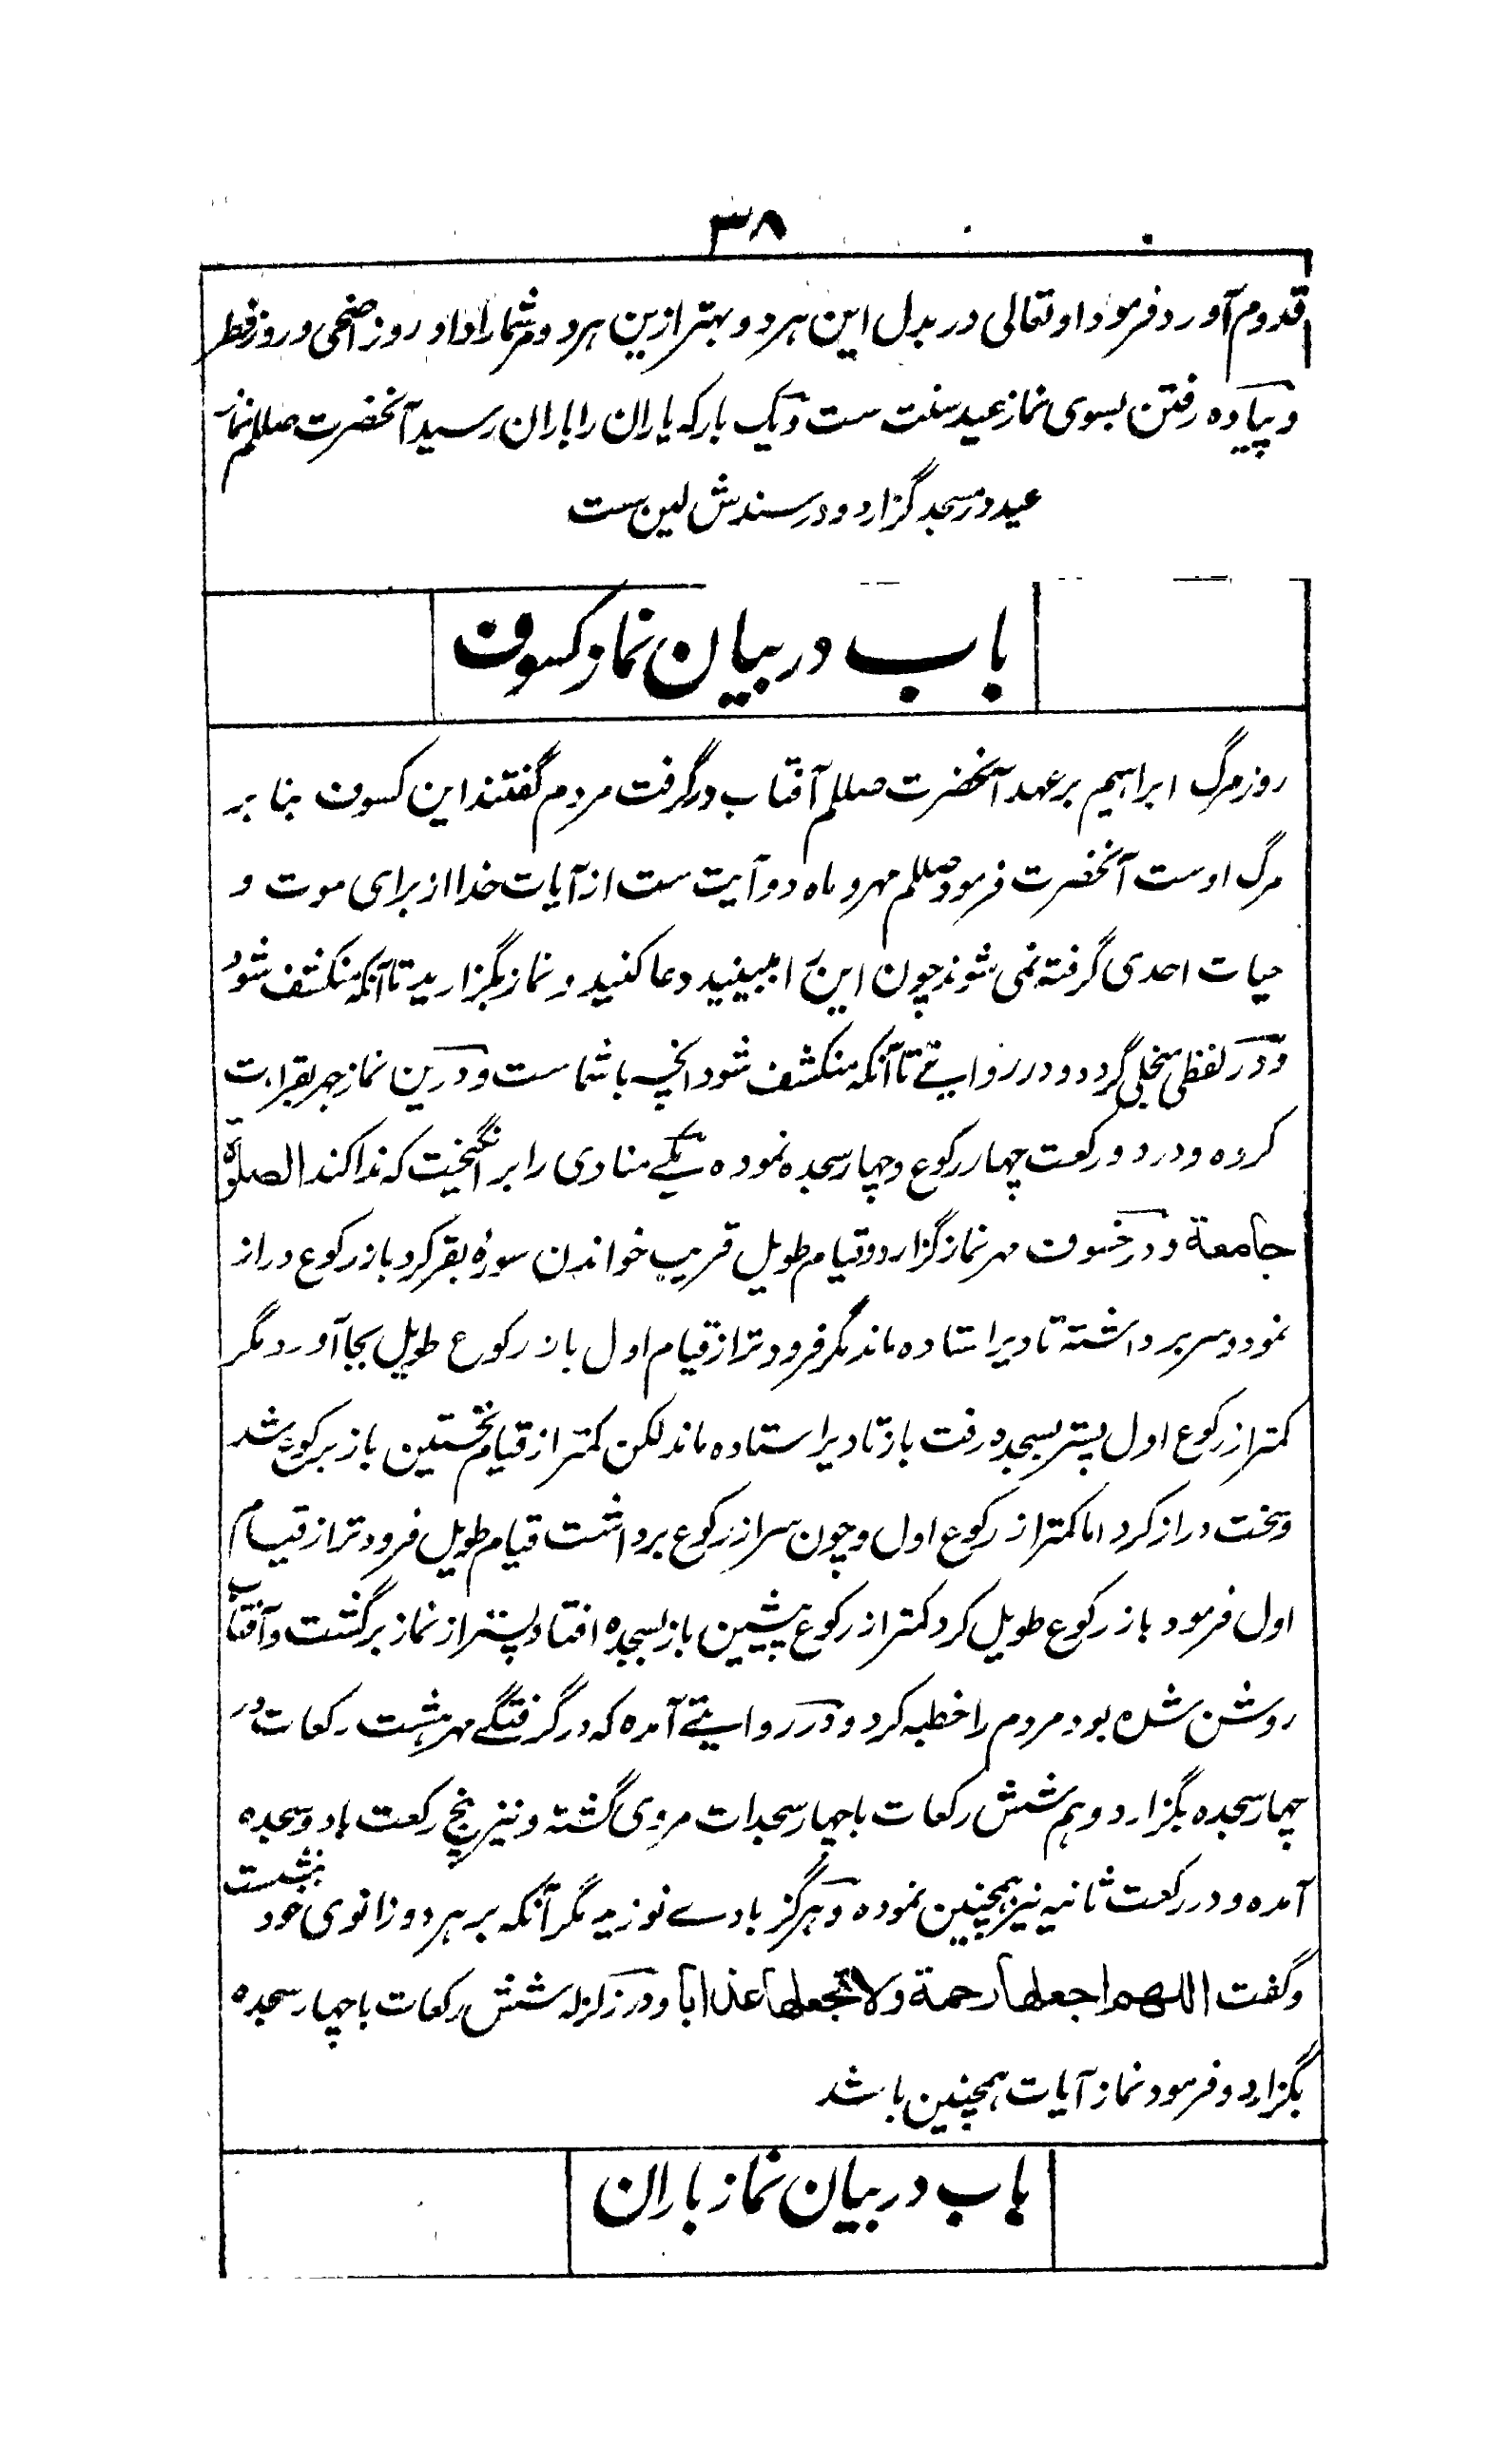 ۳۸
قدوم آورد فرمود او تعالی در بدل این هر دو بهتر ازین هر دو مر شما را داد روز اضحی و روز فطر
و پیاده رفتن بسوی نماز عید سنت ست و یک بار که یاران را باران رسید آنحضرت صللم نماز
عید در مسجد گزارد و در سندش لین ست
باب در بیان نماز کسوف
روز مرگ ابراهیم بر عهد آنحضرت صللم آفتاب در گرفت مردم گفتند این کسوف بنا بر
مرگ اوست آنحضرت فرمود صللم مهر و ماه دو آیت ست از آیات خدا از برای موت و
حیات احدی گرفته نمی شوند چون این را ببینید دعا کنید و نماز بگزارید تا آنکه منکشف شود
و در لفظی منجلی گردد و در روایتے تا آنکه منکشف شود انچه با شماست و درین نماز جهر بقراءت
کرده و در دو رکعت چهار رکوع و چهار سجده نموده یکے منادی را بر انگیخت که ندا کند الصلوة
جامعة و در خسوف مهر نماز گزارد و قیام طویل قریب خواندن سورۀ بقر کرد باز رکوع دراز
نمود و سر برداشته تا دیر استاده ماند مگر فرود تر از قیام اول باز رکوع طویل بجا آورد مگر
کمتر از رکوع اول پستر بسجده رفت باز تا دیر استاده ماند لکن کمتر از قیام نخستین باز برکوع شد
و سخت دراز کرد اما کمتر از رکوع اول و چون سر از رکوع برداشت قیام طویل فرود تر از قیام
اول فرمود باز رکوع طویل کرد کمتر از رکوع پیشین باز بسجده افتاد پستر از نماز برگشت و آفتاب
روشن شده بود مردم را خطبه کرد و در روایتے آمده که در گرفتگے مهر هشت رکعات در
چهار سجده بگزارد و هم شش رکعات با چهار سجدات مروی گشته و نیز پنج رکعت با دو سجده
آمده و در رکعت ثانیه نیز همچنین نموده و هرگز بادے نوزید مگر آنکه بر هر دو زانوی خود بنشست
و گفت اللهم اجعلها رحمة ولا تجعلها عذابا و در زلزله شش رکعات با چهار سجده
بگزارد و فرمود نماز آیات همچنین باشد
باب در بیان نماز باران